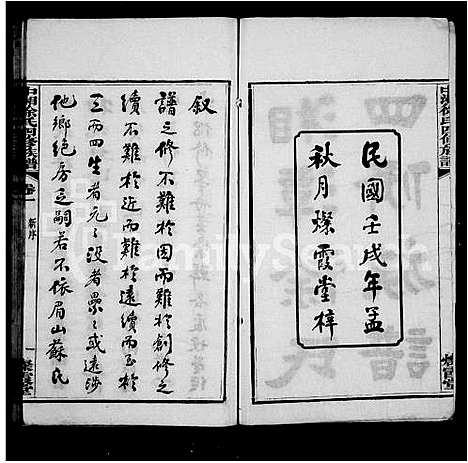 民國壬戌年孟
秋月燦霞堂梓
敘
譜之修不難於因而難於創修之
續不難於近而難於遠續而至於
三而四生者元々沒者纍々或遠涉
他鄉絕房乏嗣若不依眉山蘇氏
中湘徐氏四修族譜
卷一
新序
一
燦霞堂
FamilySearch